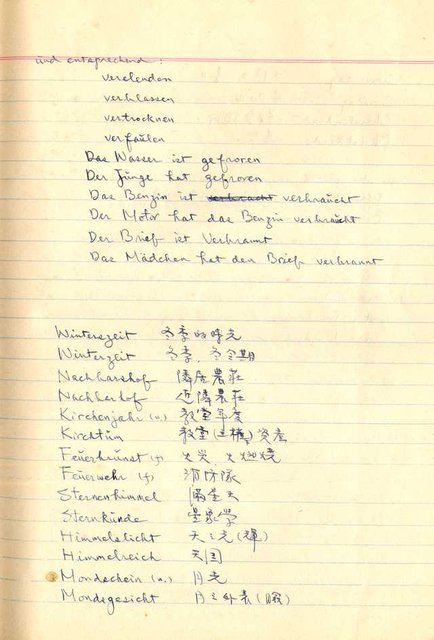 und entsprechend:
verelenden
verblassen
vertrocknen
verfaulen
Das Wasser ist gefroren
Der Junge hat gefroren
Das Benzin ist verbraucht
Der Motor hat das Benzin verbraucht
Der Brief ist Verbrannt
Das Mädchen hat den Brief verbrannt
Winterszeit 冬季的時光
Winterzeit 冬季,冬令期
Nachbarshof 隣居農莊
Nachbarhof 近隣農莊
Kirchenjahr (n.) 教堂年度
Kirchtum 教堂(主權)資產
Feuerbrunst (f) 火災,火燃燒
Feuerwehr (f) 消防隊
Sternenhimmel 滿星天
Sternkunde 星象學
Himmelslicht 天之光(輝)
Himmelreich 天国
Mondschein (n.) 月光
Mondsgesicht 月之外表(貌)